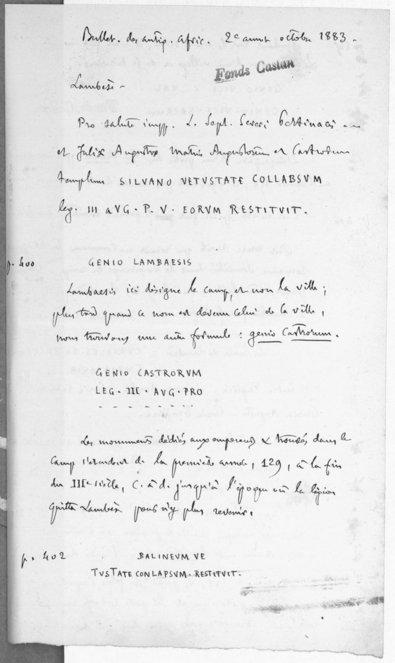 Bullet. des antiq. afric. 2e année octobre 1883 -
Fonds Castan
Lambèse -
Pro salute impp. L. Sept. Severi Pertinacis
et Julia Augusta matris Augustorum et Castrorum
templum SILVANO VETVSTATE COLLABSVM
leg. III AVG. P. V. EORVM RESTITVIT.
p. 400 GENIO LAMBAESIS
Lambaesis ici désigne le camp, et non la ville ;
plus tard quand ce nom est devenu celui de la ville,
nous trouvons une autre formule : genio Castrorum.
GENIO CASTRORVM
LEG. III. AVG. PRO
- - - - - - - - -
Les monuments dédiés aux empereurs & trouvés dans le
camp s'étendent de la première année, 129, à la fin
du IIIe siècle, c. à d. jusqu'à l'époque où la légion
quitta Lambèse pour n'y plus revenir.
p. 402 BALINEVM VE
TVSTATE CONLAPSVM. RESTITVIT.